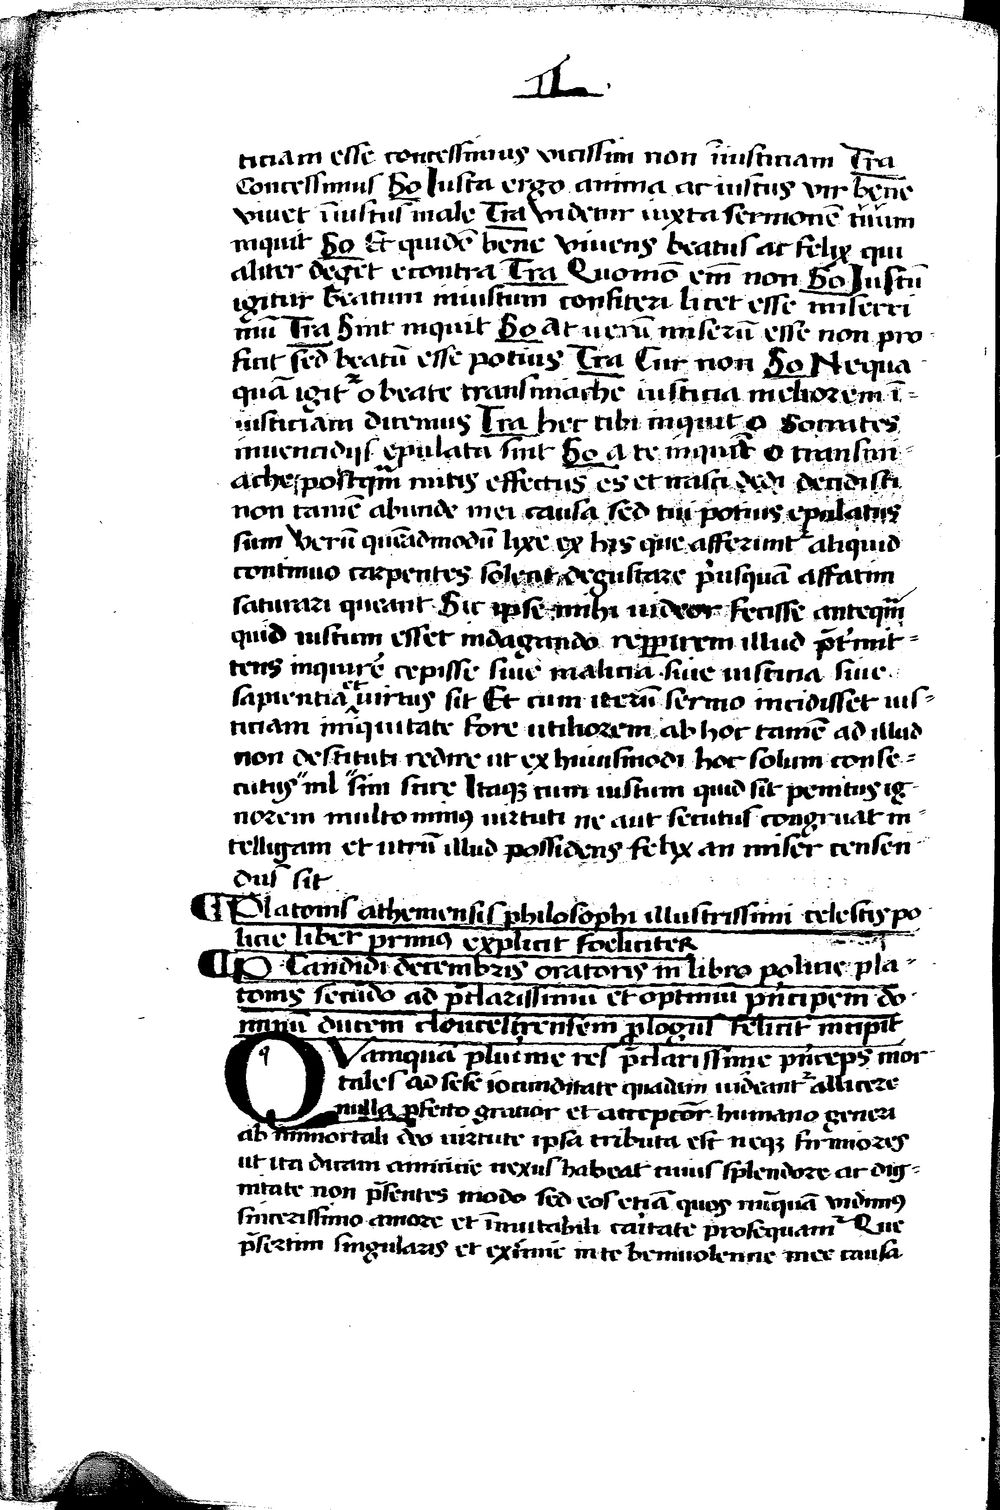 II.
ticiam esse concessimus vicissim non īiusticiam Tra
Concessimus So Iusta ergo anima ac iustus vir bene
vivet īiustus male Tra Videtur iuxta sermonē tuum
inquit So Et quidē bene vivens beatus ac felix qui
aliter deget econtra Tra Quomō eīn non So Iustū
igitur beatum iniustum confiteri licet esse miserri
mū Tra Sint inquit So At uerū miserū esse non pro
ficit sed beatū esse potius Tra Cur non So Nequa
quā igit᷑ o beate transimache iusticia meliorem ī=
iusticiam dicemus Tra hec tibi inquit o Socrates
inuencidijs epulata sint So a te inquit o transim=
ache postqm̄ mitis effectus es et irasci dedi decidisti
non tamē abunde mei causa sed tui potius epulatus
sum Verū quēadmodū lixe ex hijs que afferunt᷑ aliquid
continuo carpentes solent degustare p̓usquā affatim
saturari queant Sic ipse mihi uideor fecisse anteqm̄
quid iustum esset indagando repperirem illud p̄t̓mit=
tens inquirē cepisse siue malicia siue iusticia siue
sapientia et uirtus sit Et cum iterū sermo incidisset ius=
ticiam iniquitate fore utiliorem ab hoc tamē ad illud
non destituti redire ut ex huiusmodi hoc solum conse=
cutus"nl"sim scire Itaqꝫ cum iustum quid sit penitus ig=
norem multo minꝰ uirtuti ne aut secutus congruat in=
telligam et utrū illud possidens felix an miser censen
dus sit
¶ Platonis atheniensis philosophi illustrissimi celestis po
licie liber primꝰ explicit foeliciter
¶ P Candidi decembris oratoris in libro policie pla=
tonis secūdo ad p̄clarissimū et optimū p̓ncipem do
minū ducem cloucestrensem ꝓlogus felicit̓ incipit
QVamquā plurime res p̄clarissime p̓nceps mor
tales ad sese iocunditate quadam uideant᷑ allicere
nulla ꝓfecto gratior et acceptior humano generi
ab immortali deo uirtute ipsa tributa est neqꝫ firmiores
ut ita dicam amicicie nexus habeat cuius splendore ac dig=
nitate non p̄sentes modo sed eos etiā quos nūquā vidimꝰ
sincerissimo amore et īmutabili caritate prosequam᷑ Que
p̄sertim singularis et eximie in te beniuolencie mee causa